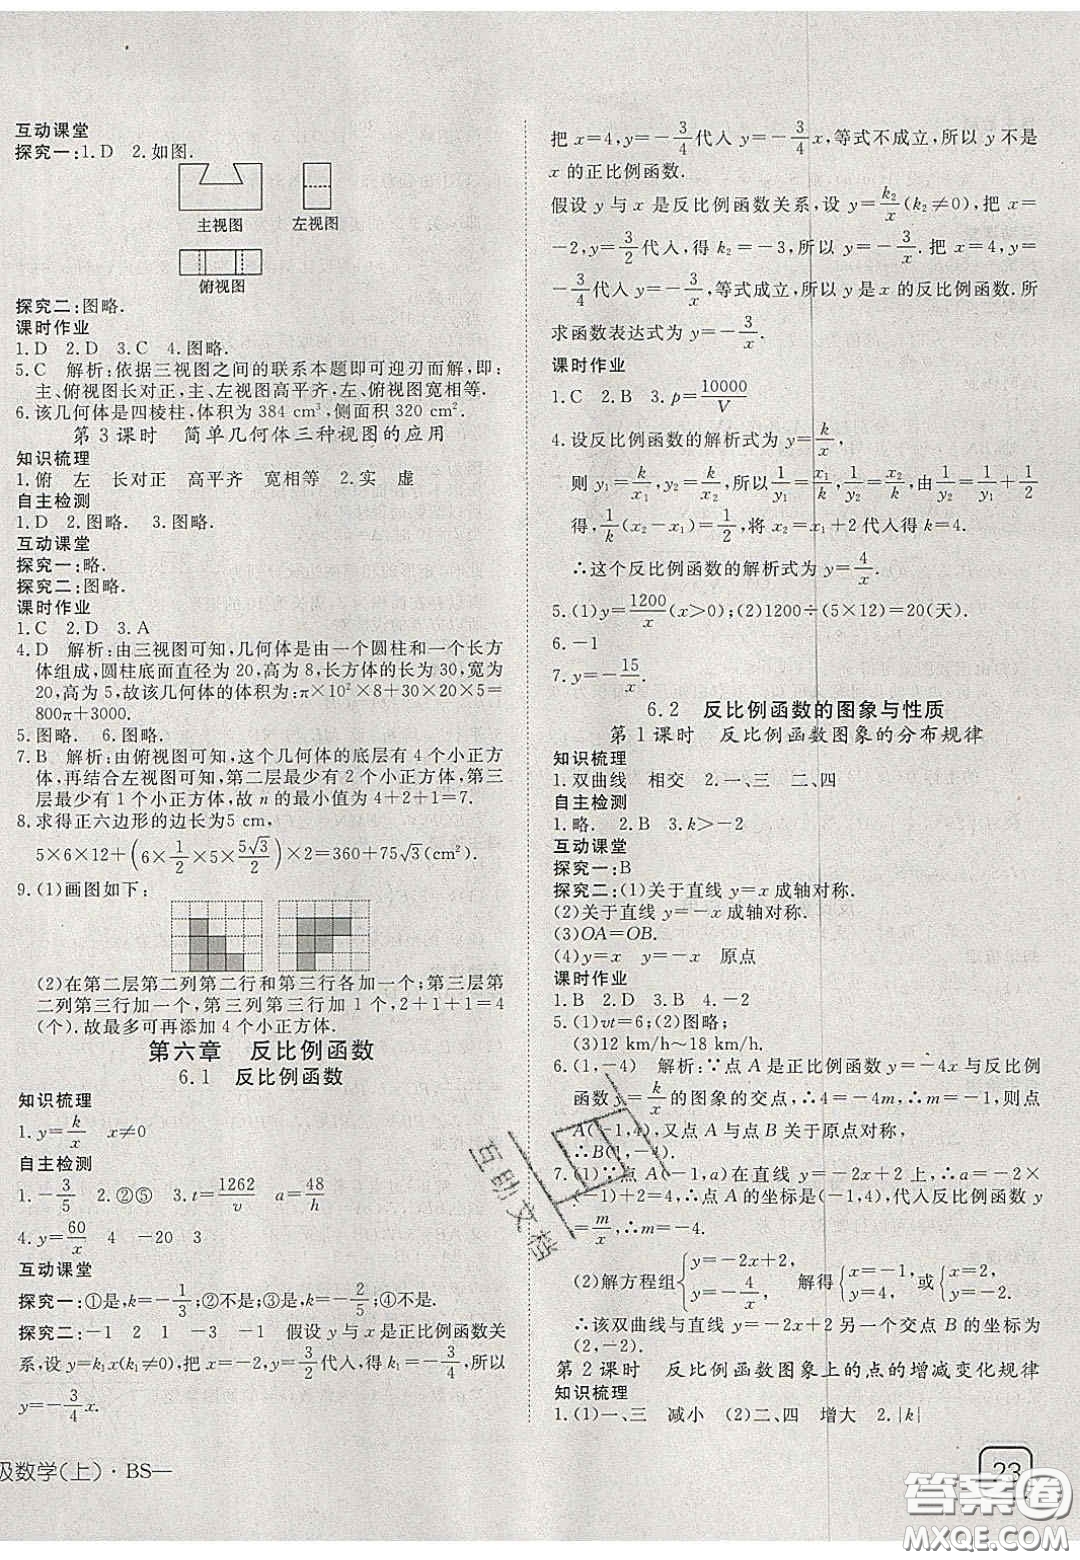 互动课堂
探究一:1.D 2.如图.
主视图 左视图
俯视图
探究二:图略.
课时作业
1.D 2.D 3.C 4.图略.
5.C 解析:依据三视图之间的联系本题即可迎刃而解,即:
主、俯视图长对正,主、左视图高平齐,左、俯视图宽相等.
6.该几何体是四棱柱,体积为 384 cm³,侧面积 320 cm².
第 3 课时 简单几何体三种视图的应用
知识梳理
1.俯 左 长对正 高平齐 宽相等 2.实 虚
自主检测
1.D 2.图略. 3.图略.
互动课堂
探究一:略.
探究二:图略.
课时作业
1.C 2.D 3.A
4.D 解析:由三视图可知,几何体是由一个圆柱和一个长方
体组成,圆柱底面直径为 20,高为 8,长方体的长为 30,宽为
20,高为 5,故该几何体的体积为:π×10²×8+30×20×5=
800π+3000.
5.图略. 6.图略.
7.B 解析:由俯视图可知,这个几何体的底层有 4 个小正方
体,再结合左视图可知,第二层最少有 2 个小正方体,第三
层最少有 1 个小正方体,故 n 的最小值为 4+2+1=7.
8.求得正六边形的边长为5 cm,
5×6×12+(6×1/2×5×5√3/2)×2=360+75√3(cm²).
9.(1)画图如下:
(2)在第二层第二列第二行和第三行各加一个,第三层第
二列第三行加一个,第三列第三行加一个,2+1+1=4
(个).故最多可再添加 4 个小正方体.
第六章 反比例函数
6.1 反比例函数
知识梳理
1.y=k/x x≠0
自主检测
1.-3/5 2.②⑤ 3.t=1262/v a=48/h
4.y=60/x 4 -20 3
互动课堂
探究一:①是,k=-1/3;②不是;③是,k=-2/5;④不是.
探究二:-1 2 1 -3 -1 假设 y 与 x 是正比例函数关
系,设 y=k₁x(k₁≠0),把 x=-2,y=3/2代入,得 k₁=-3/4,所以
y=-3/4x.
级数学(上)·BS—
把 x=4,y=-3/4代入 y=-3/4x,等式不成立,所以 y 不是
x 的正比例函数.
假设 y 与 x 是反比例函数关系,设 y=k₂/x(k₂≠0),把 x=
-2,y=3/2代入,得 k₂=-3,所以 y=-3/x.把 x=4,y=
-3/4代入 y=-3/x,等式成立,所以 y 是 x 的反比例函数.所
求函数表达式为 y=-3/x.
课时作业
1.C 2.B 3.p=10000/V
4.设反比例函数的解析式为 y=k/x,
则 y₁=k/x₁,y₂=k/x₂,所以1/y₁=x₁/k,1/y₂=x₂/k,由1/y₂=1/y₁+1/2
得,1/k(x₂-x₁)=1/2,将 x₂=x₁+2 代入得 k=4.
∴这个反比例函数的解析式为 y=4/x.
5.(1)y=1200/x(x>0);(2)1200÷(5×12)=20(天).
6.-1
7.y=-15/x.
6.2 反比例函数的图象与性质
第 1 课时 反比例函数图象的分布规律
知识梳理
1.双曲线 相交 2.一、三 二、四
自主检测
1.略. 2.B 3.k>-2
互动课堂
探究一:B
探究二:(1)关于直线 y=x 成轴对称.
(2)关于直线 y=-x 成轴对称.
(3)OA=OB.
(4)y=x y=-x 原点
课时作业
1.B 2.D 3.B 4.-2
5.(1)vt=6;(2)图略;
(3)12 km/h~18 km/h.
6.(1,-4) 解析:∵点 A 是正比例函数 y=-4x与反比例
函数 y=k/x的图象的交点,∴4=-4m,∴m=-1,则点
A(-1,4),又点 A 与点 B 关于原点对称,
∴B(1,-4).
7.(1)∵点 A(-1,a)在直线 y=-2x+2 上,∴a=-2×
(-1)+2=4,∴点 A 的坐标是(-1,4),代入反比例函数 y
=m/x,∴m=-4.
(2)解方程组{y=-2x+2, y=-4/x, 解得{x=-1, y=4, 或{x=2, y=-2.
∴该双曲线与直线 y=-2x+2 另一个交点 B 的坐标为
(2,-2).
第 2 课时 反比例函数图象上的点的增减变化规律
知识梳理
1.(1)一、三 减小 (2)二、四 增大 2.|k|
23
互助文档
答案圈
MXQE.COM